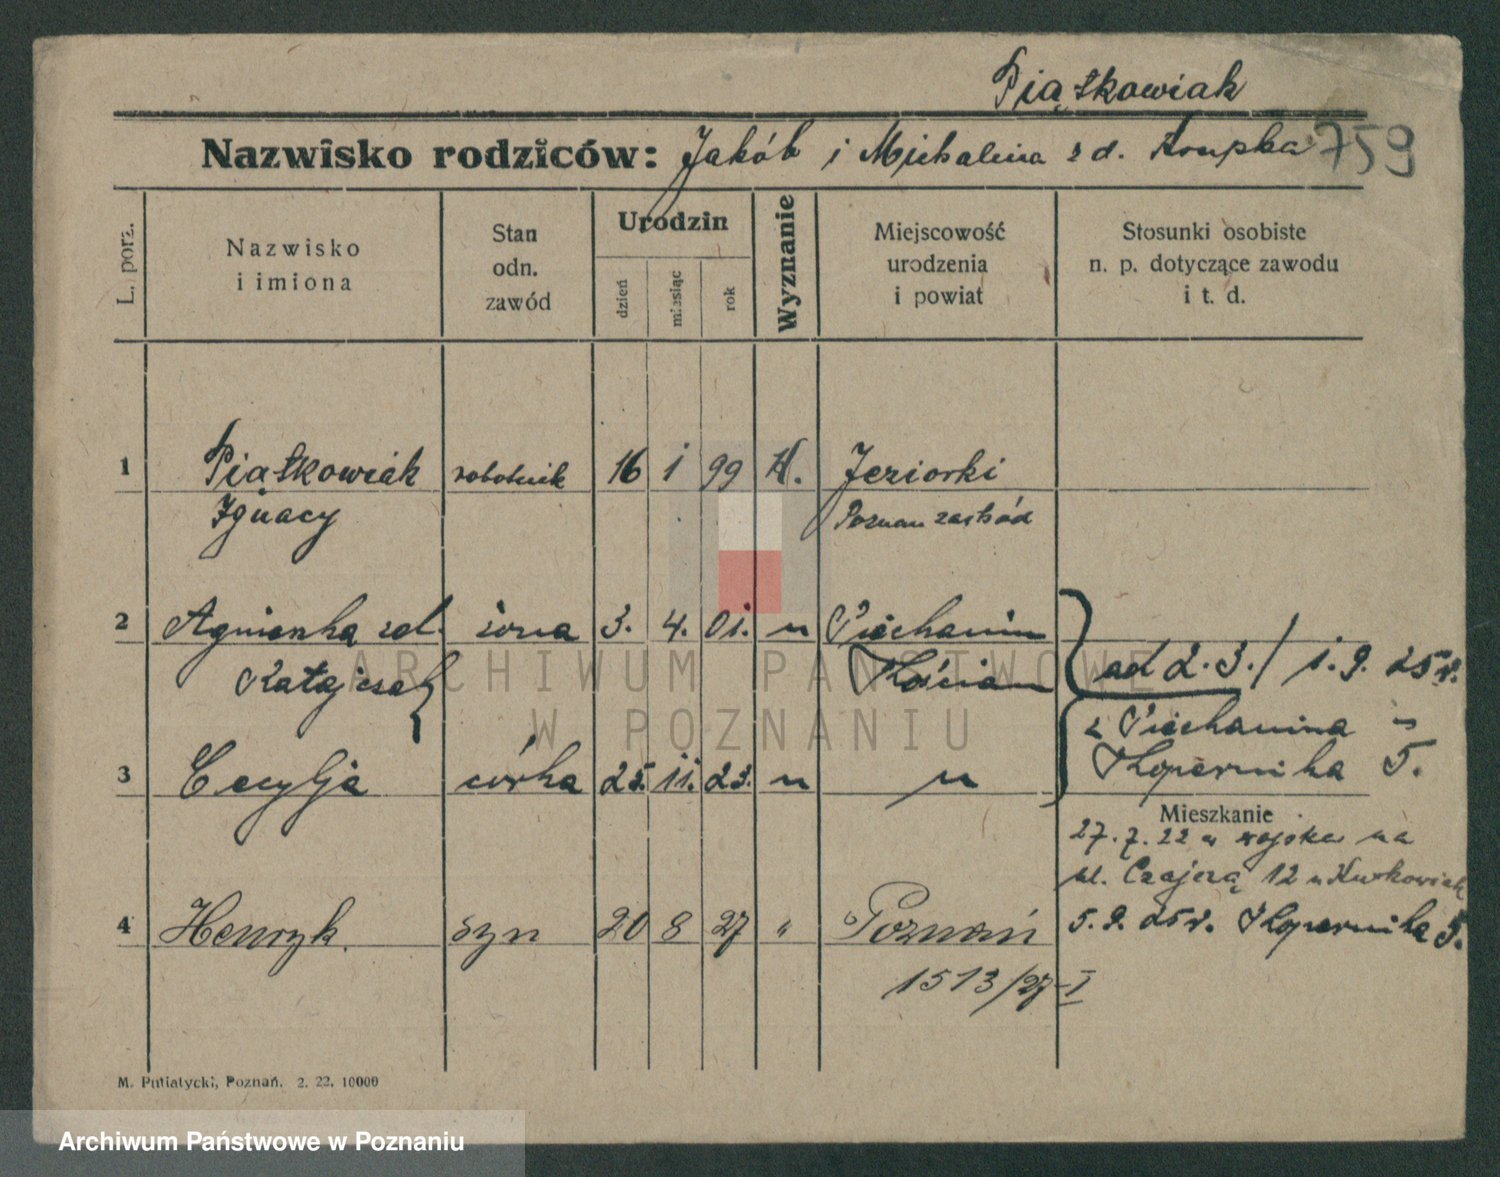 Piątkowiak
Nazwisko rodziców: Jakób i Michalina z d. Krupka 759
L. porz.
Nazwisko
i imiona
Stan
odn.
zawód
Urodzin
dzień
miesiąc
rok
Wyznanie
Miejscowość
urodzenia
i powiat
Stosunki osobiste
n. p. dotyczące zawodu
i t. d.
1 Piątkowiak robotnik 16 1 99 K. Jeziorki
Ignacy Poznań zachód
2 Agnieszka zd. żona 3. 4. 01. " Piechanin
Katajczak Kościan
ad 2.3./ 1.9. 25r.
z Piechanina -
Kopernika 5.
3 Cecylja córka 25. 11. 23. " "
Mieszkanie
27.7.22 z wojska na
ul. Czajczą 12 u Kurkowiak
4 Henryk. syn 20 8 27 " Poznań
5.9.25r. Kopernika 5.
1513/27-I
M. Putiatycki, Poznań. 2. 22. 10000
ARCHIWUM PAŃSTWOWE
W POZNANIU
Archiwum Państwowe w Poznaniu